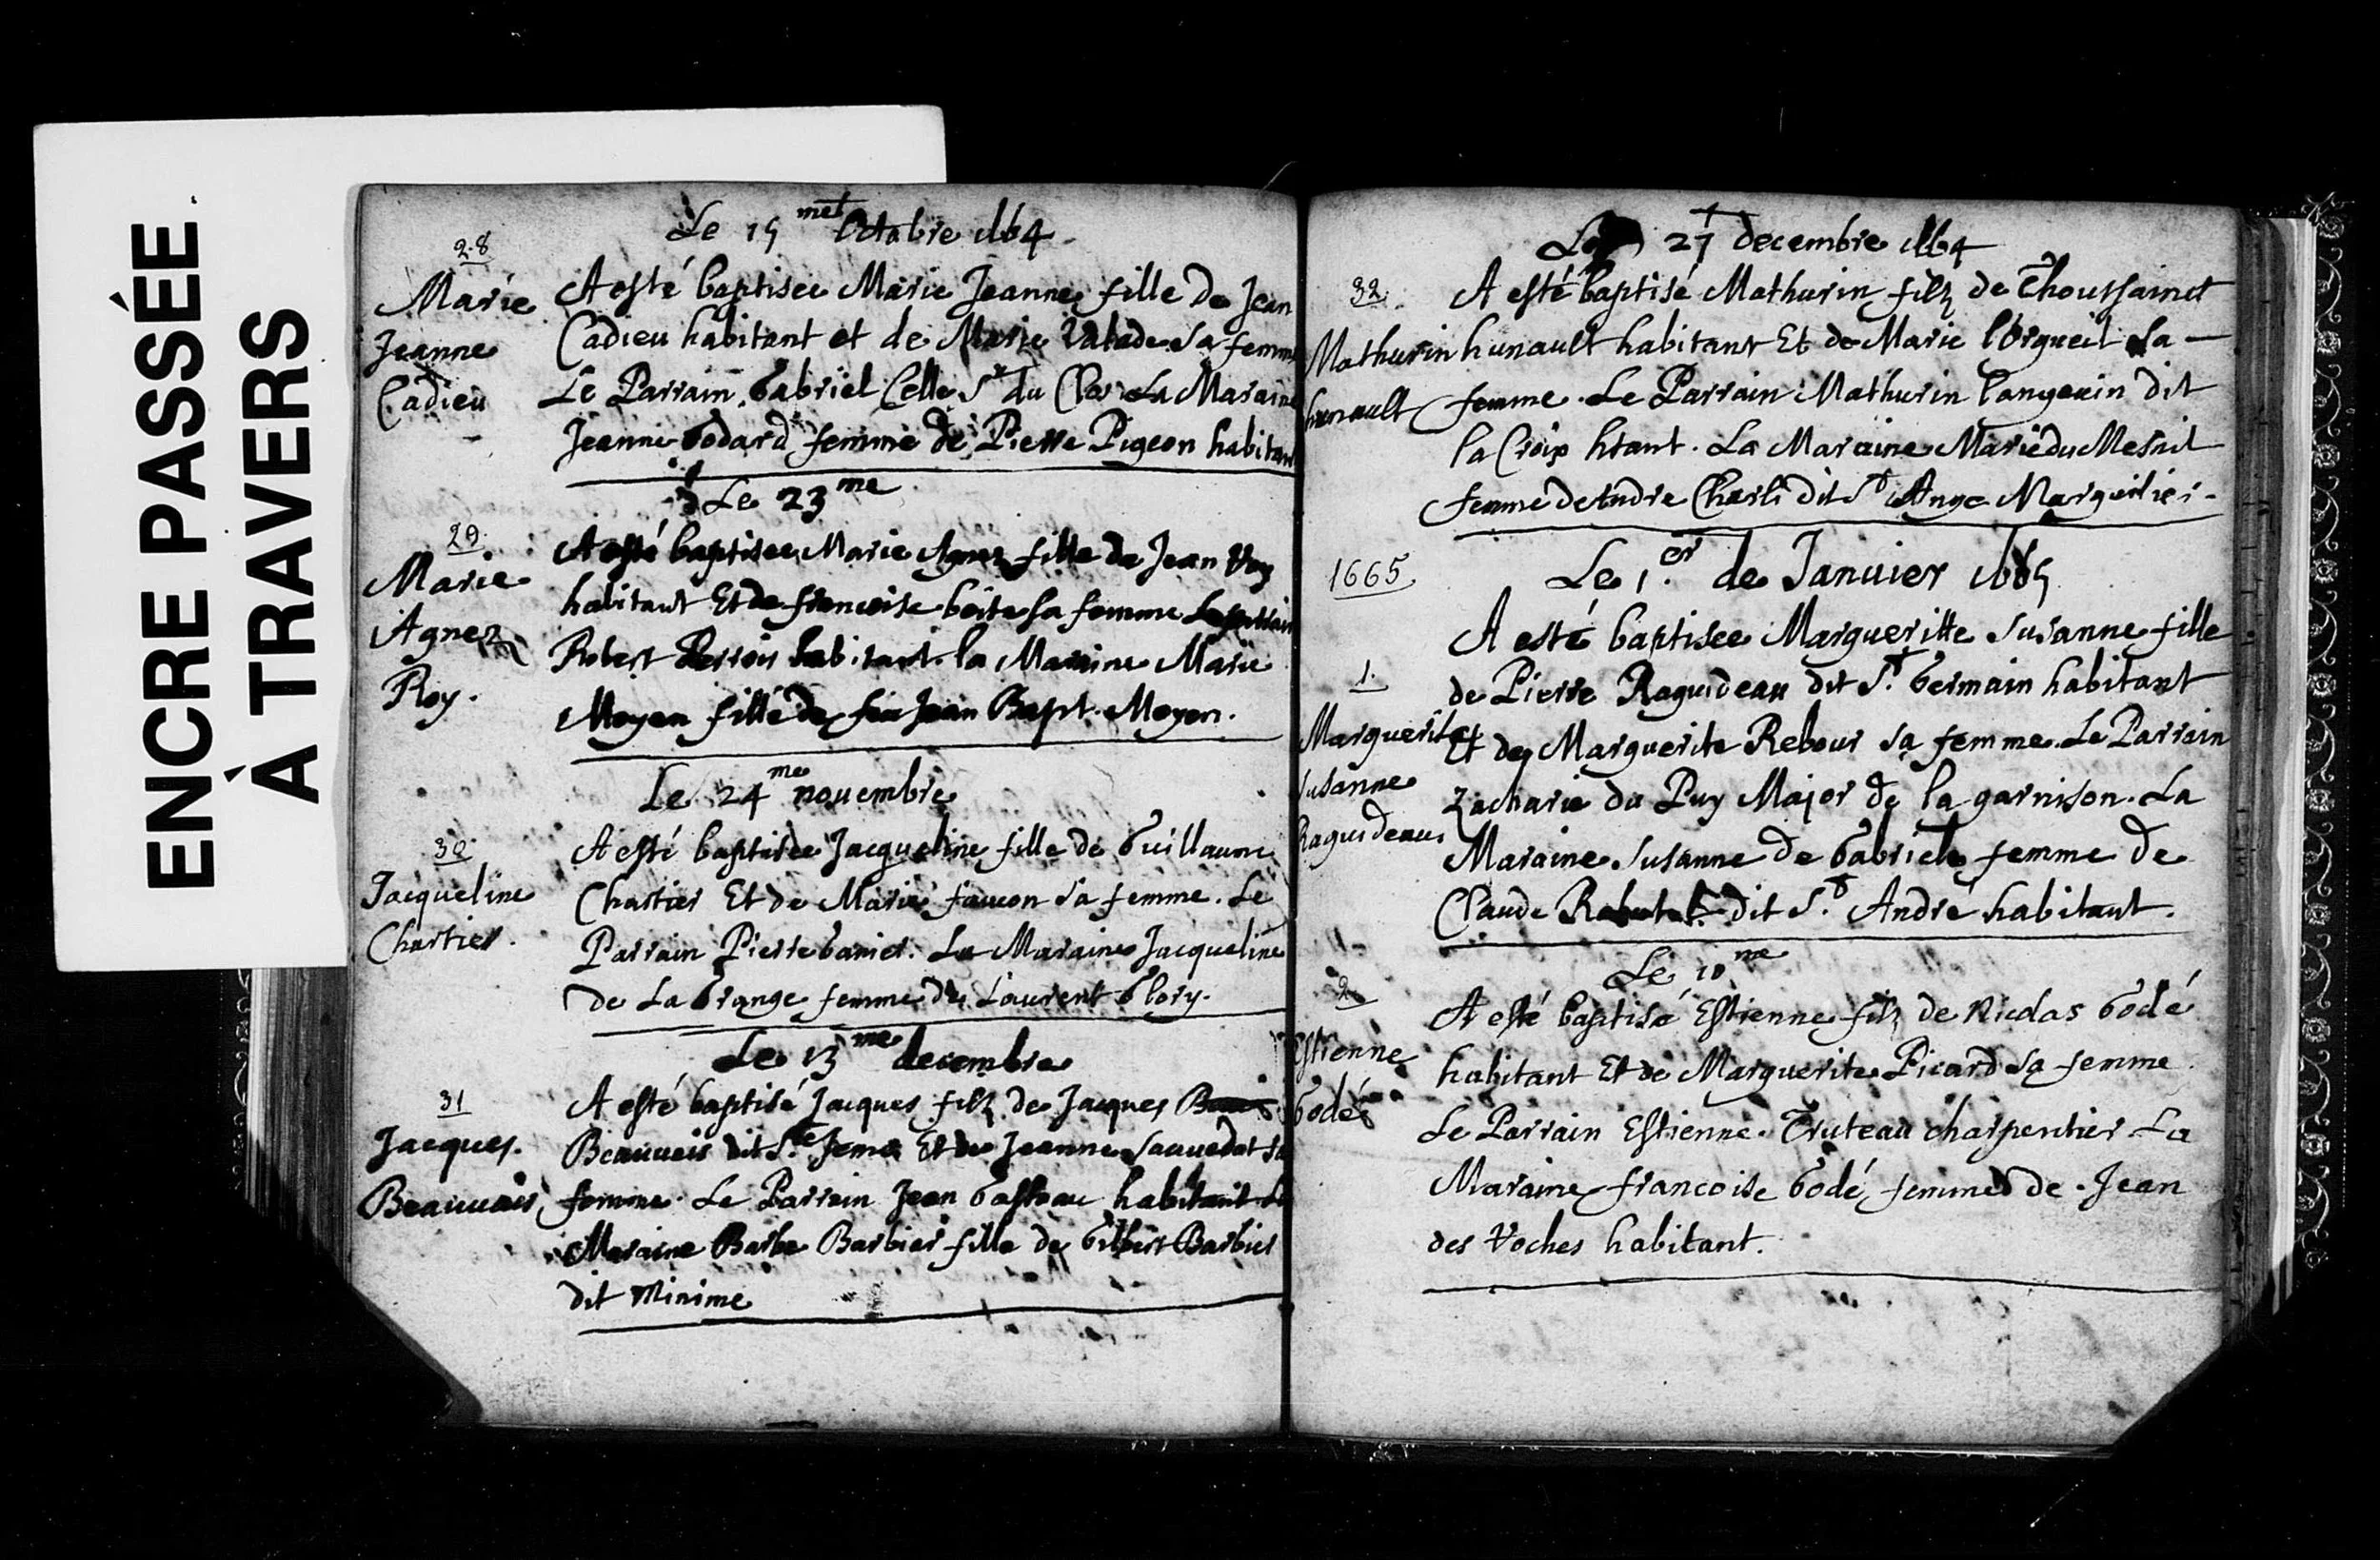 ENCRE PASSÉE
À TRAVERS
Le 15 me Octobre 1664
28
Marie
Jeanne
Cadieu
A esté baptisée Marie Jeanne fille de Jean
Cadieu habitant et de Marie Valade sa femme
Le Parrain Gabriel Celle Sr du Clos La Maraine
Jeanne Godard femme de Pierre Pigeon habitant
Le 23 me
29
Marie
Agnez
Roy.
A esté baptisée Marie Agnez fille de Jean Roy
habitant Et de francoise boite sa femme Le parrain
Robert Perrois habitant. la Maraine Marie
Moyen fille de feu Jean Bapt. Moyen.
Le 24 me nouembre
30
Jacqueline
Chartier.
A esté baptisée Jacqueline fille de Guillaume
Chartier Et de Marie faucon sa femme. Le
Parrain Pierre Ganiet. La Maraine Jacqueline
de La Grange femme de Laurent Glory.
Le 13 me decembre
31
Jacques.
Beauuais
A esté baptisé Jacques filz de Jacques
Beauuais dit Ste Jeme Et de Jeanne Sauuedat sa
femme. Le Parrain Jean Gasteau habitant La
Maraine Barbe Barbier fille de Gilbert Barbier
dit Minime
Le 27 decembre 1664
32
Mathurin
hunault
A esté baptisé Mathurin filz de Thoussainct
hunault habitant Et de Marie lorgueil sa —
femme. Le Parrain Mathurin langeuin dit
la Croix htant. La Maraine Marie du Mesnil
femme de Andre Charli dit St Ange Marguilier.
1665
Le 1.er de Januier 1665
1.
Marguerite
Susanne
Raguideau
A esté baptisée Margueritte Susanne fille
de Pierre Raguideau dit St. Germain habitant
Et de Marguerite Rebour sa femme. Le Parrain
Zacharie du Puy Major de la garnison. La
Maraine Susanne de Gabriele femme de
Claude dit St. André habitant.
Le 10 me
2
Estienne
Godé
A esté baptisé Estienne filz de Nicolas Godé
habitant Et de Marguerite Picard sa femme.
Le Parrain Estienne Truteau charpentier La
Maraine francoise Godé femme de Jean
des Roches habitant.